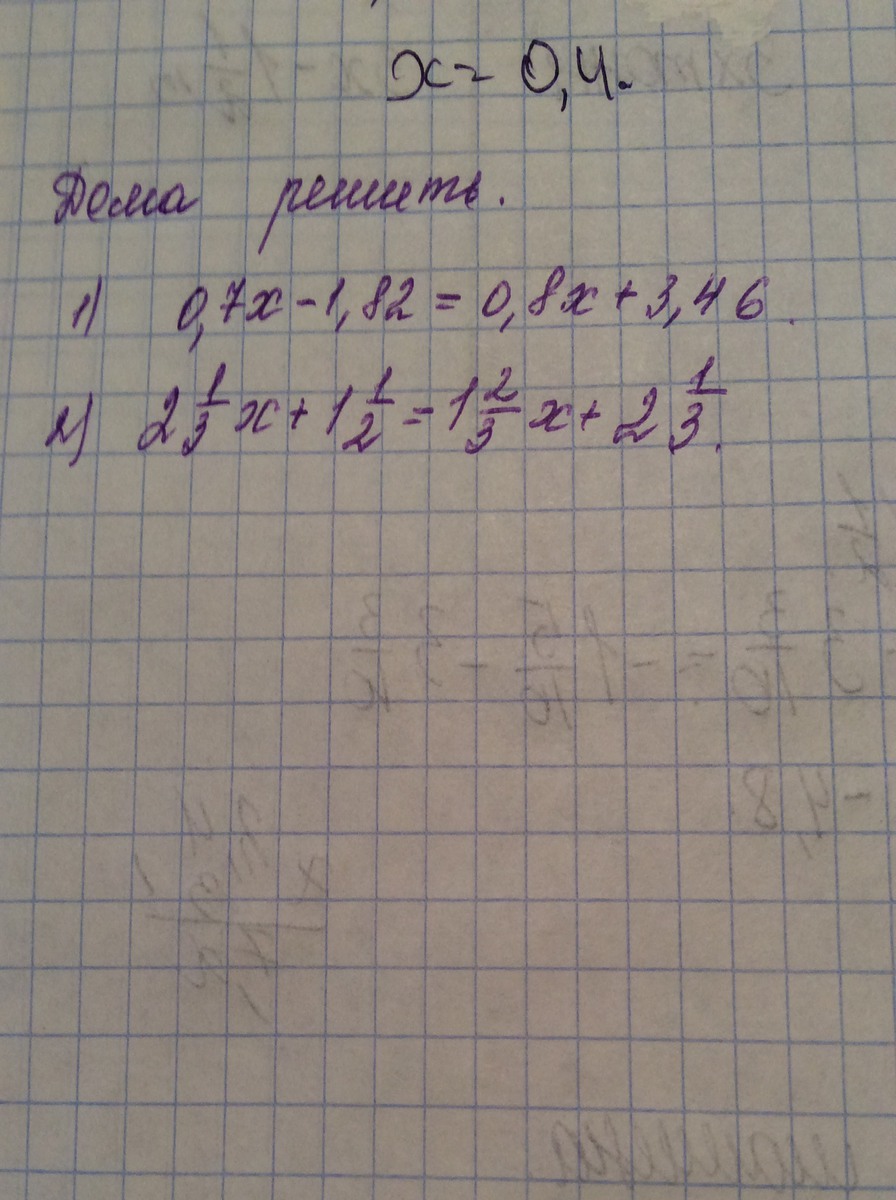 x = 0,4.
Дома решить.
1) 0,7x - 1,82 = 0,8x + 3,46.
2) 2 1/3 x + 1 1/2 = 1 2/3 x + 2 1/3.